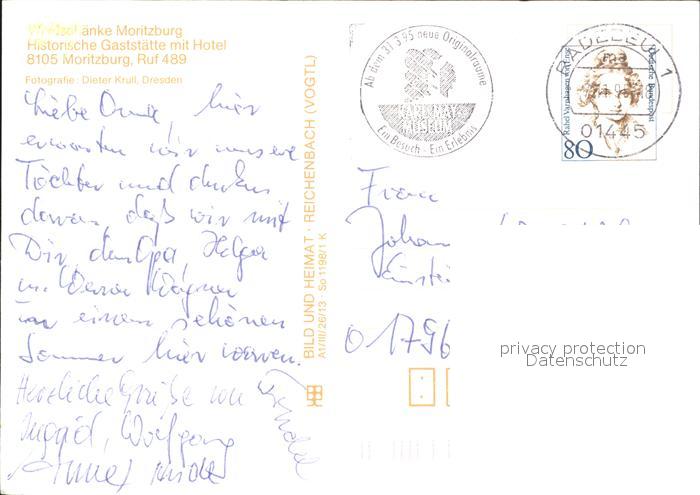 Wirtschänke Moritzburg
Historische Gaststätte mit Hotel
8105 Moritzburg, Ruf 489
Fotografie: Dieter Krull, Dresden
Liebe Oma, hier
erwarten wir unsere
Töchter und denken
daran, daß wir mit
Dir, dem Opa, Helga
u. Werner Wagner
in einem schönen
Sommer hier waren.
Herzliche Grüße von
Ingrid, Wolfgang
BILD UND HEIMAT · REICHENBACH (VOGTL)
A1/III/26/13 So 1198/1 K
Ab dem 31.3.95 neue Originalräume
KARL-MAY-
MUSEUM
Ein Besuch - Ein Erlebnis
RADEBEUL 1
01445
Rahel Varnhagen von Ense
Deutsche Bundespost
80
Frau
Johan
Einste
01796
privacy protection
Datenschutz